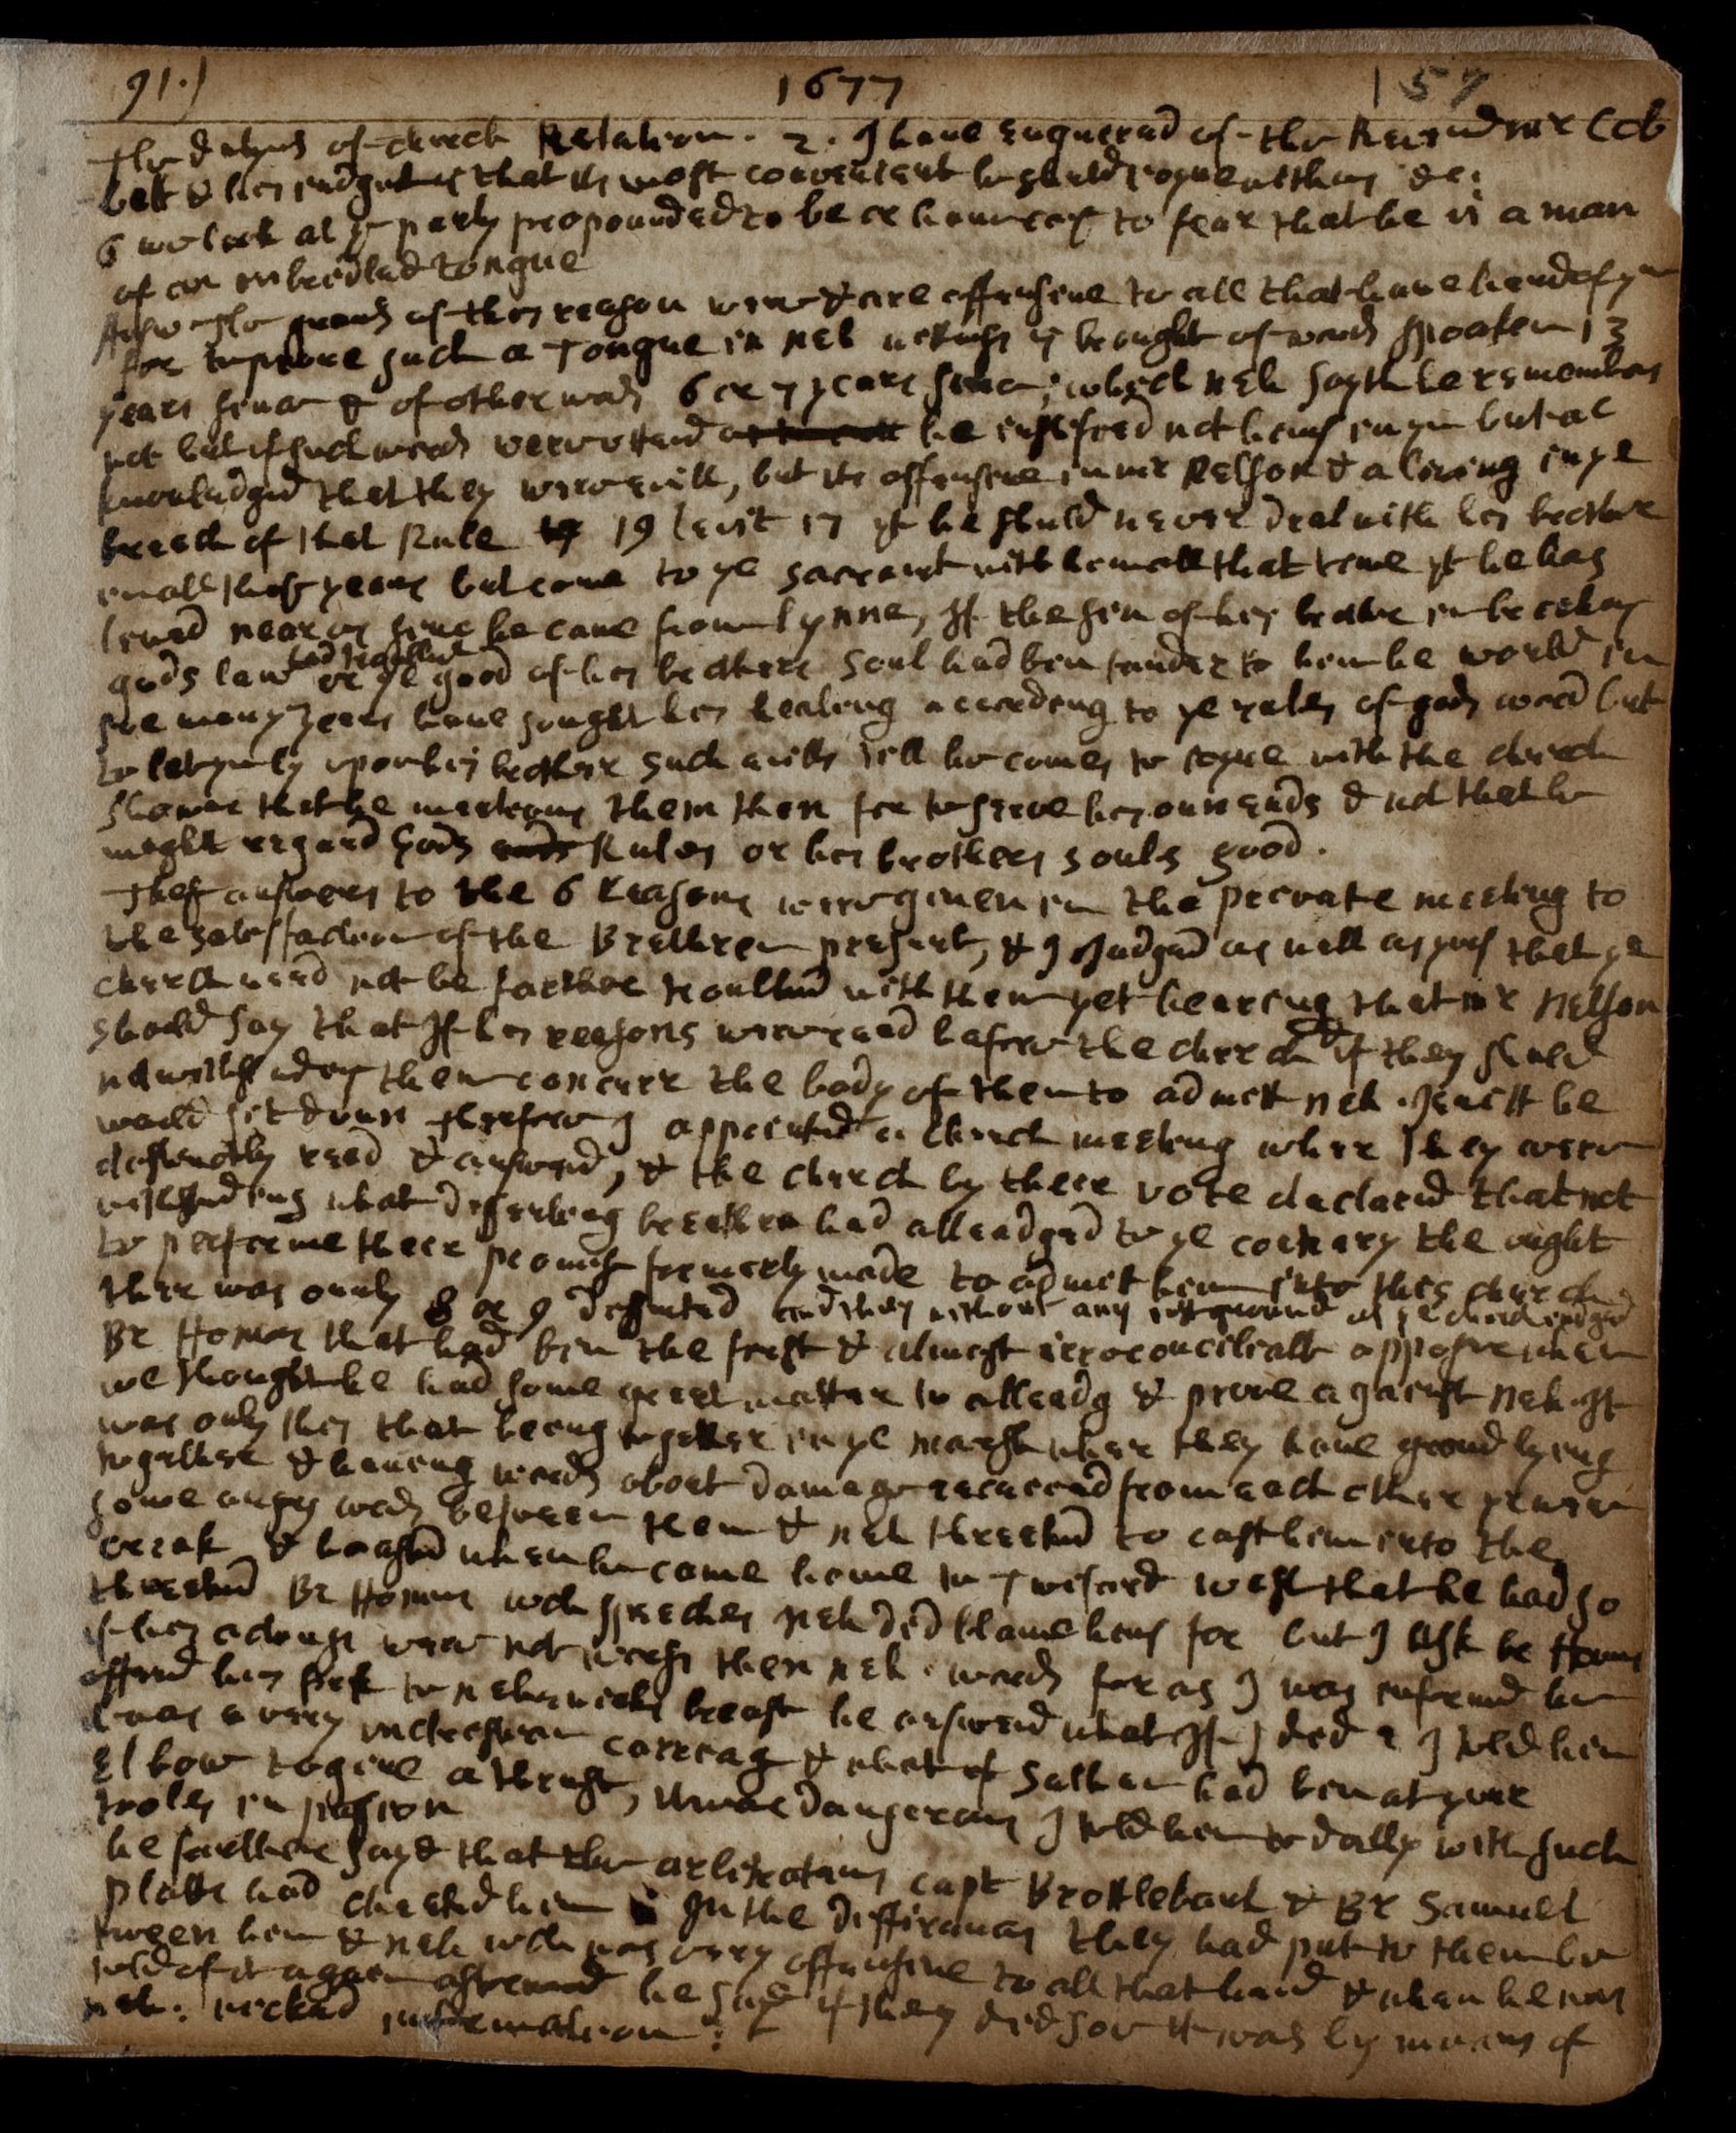 91.) 1677 157
The dutys of church Relation. 2. I have enquered of the Reverend mr Cob
bett & his judgment is that its most convenient he should joyne with us &c:
6 we look at ye party propounded to be & have cause to fear that he is a man
of an unbridled tongue
Answ the grounds of this reason were & are offensive to all that have heard of ym
for to prove such a Tongue in Neh nothing is brought of words spoaken 13
years since & of other words 6 or 7 years since, which Neh sayth he remembers
not but if such words were uttered he justifyed not himself in ym but ac
knowledged that they were evill, but its offensive in mr Nelson & a living in ye
breach of that Rule 19 Levit 17 yt he should never deal with his brother
in all thos years but come to ye sacrament with him all that time yt he has
lived near us since he came from Lynne, If the sin of his brother in breaking
gods law or ye good of his brothers soul had ben tender to him he would in
soe many years have sought his healing according to ye rules of gods word but
to let ym ly upon his brother such evills till he comes to joyne with the church
shewes that he mentions them then for to serve his own ends & not that he
might regard gods Rules or his brothers souls good.
Thes answers to the 6 Reasons were given in the private meeting to
the satisfaction of the Brethren present, & I judged as well as yos that ye
church need not be farther troubled with them yet hearing that mr Nelson
should say that If his reasons were read before the church & if they should
notwithstanding them concurr the body of them to admitt Neh. Jewett he
would sit down therefore I appointed a church meeting where they were
distinctly read & answerd, & the church by there vote declared that not
withstanding what disenting breethren had alleadged to ye contrary the ought
to performe there promise formerly made to admitt him into this church
there was onely 8 or 9 dissented and they without any just ground as ye church judged
Br Homan that had ben the first & almost irreconcileable opposer when
we thought he had some great matter to alleadg & prove against Neh. It
was only this that being together in ye marsh where they have ground lying
together & having words about damage received from each other there were
some angry words between them & Neh threatned to cast him into the
creak & boasted when he came home to Twiford West that he had so
threatned Br Homan wch speeches Neh did blame hims for but I ask br Homan
if his actions were not worse then Neh. words for as I was informed he
offerd his fist to Nehemiahs breast he answerd what If I did ? I told him
it was a very unchristian carreag & what if Sathan had ben at your
elbow to give a thrust, twas dangerous I told him to dally with such
tooles in passion
he farther sayd that the arbitrators capt Brocklebank & Br Samuel
Platts had cheated him In the differances they had put to them be
tween him & Neh wch was very offensive to all that heard & when he was
told of it again afterward he sayd if they did soe it was by means of
Neh: wicked information: